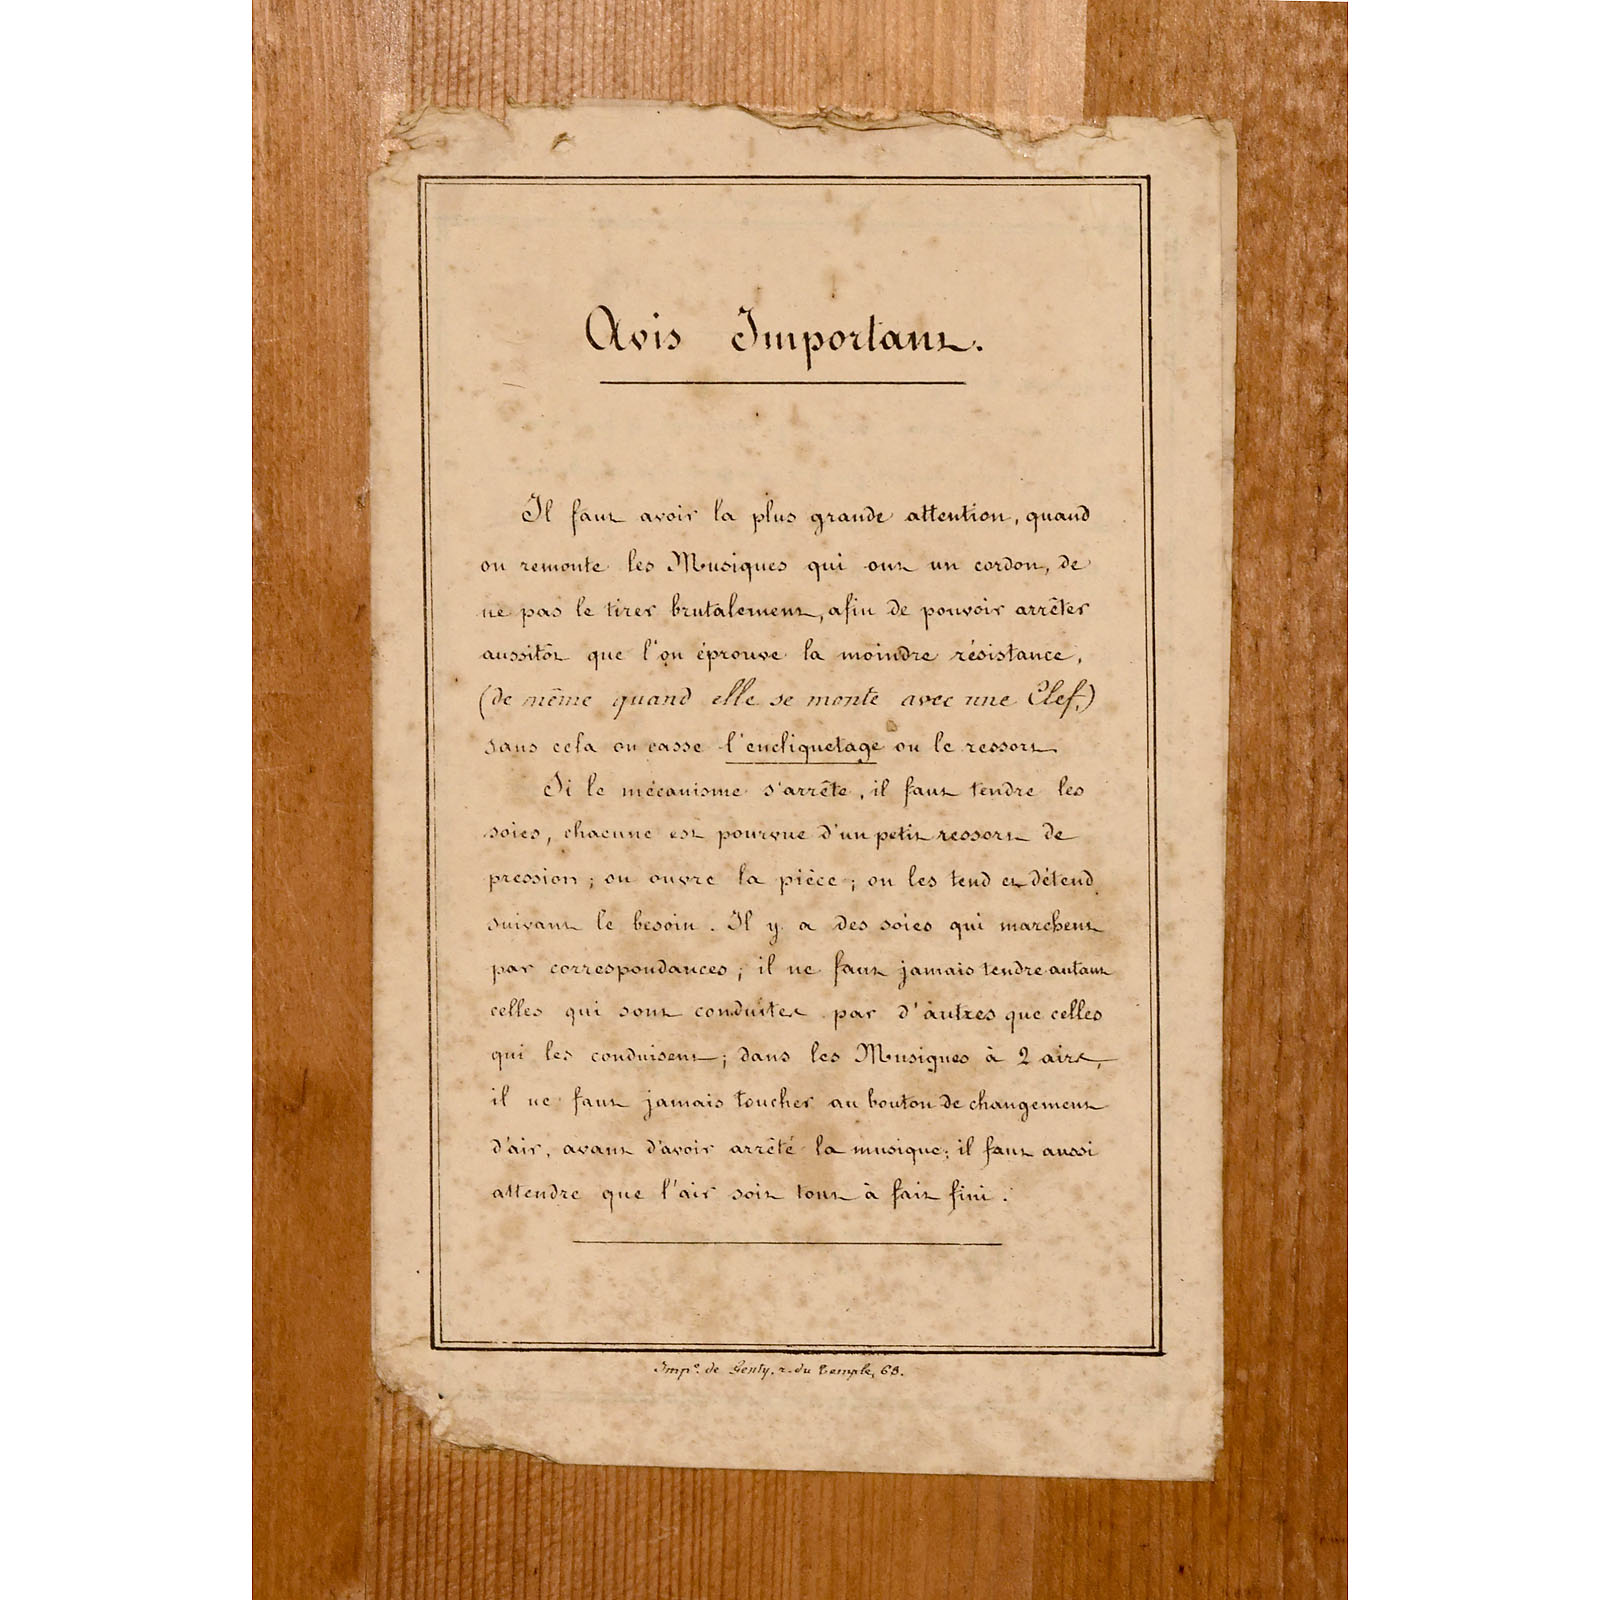 Avis Important.
Il faut avoir la plus grande attention, quand
on remonte les Musiques qui ont un cordon, de
ne pas le tirer brutalement, afin de pouvoir arrêter
aussitôt que l'on éprouve la moindre résistance,
(de même quand elle se monte avec une Clef,)
sans cela on casse l'encliquetage ou le ressort.
Si le mécanisme s'arrête, il faut tendre les
soies, chacune est pourvue d'un petit ressort de
pression; on ouvre la pièce; on les tend et détend
suivant le besoin. Il y a des soies qui marchent
par correspondances; il ne faut jamais tendre autant
celles qui sont conduites par d'autres que celles
qui les conduisent; dans les Musiques à 2 airs,
il ne faut jamais toucher au bouton de changement
d'air, avant d'avoir arrêté la musique; il faut aussi
attendre que l'air soit tout à fait fini.
Imp.e de Genty, r. du Temple, 63.